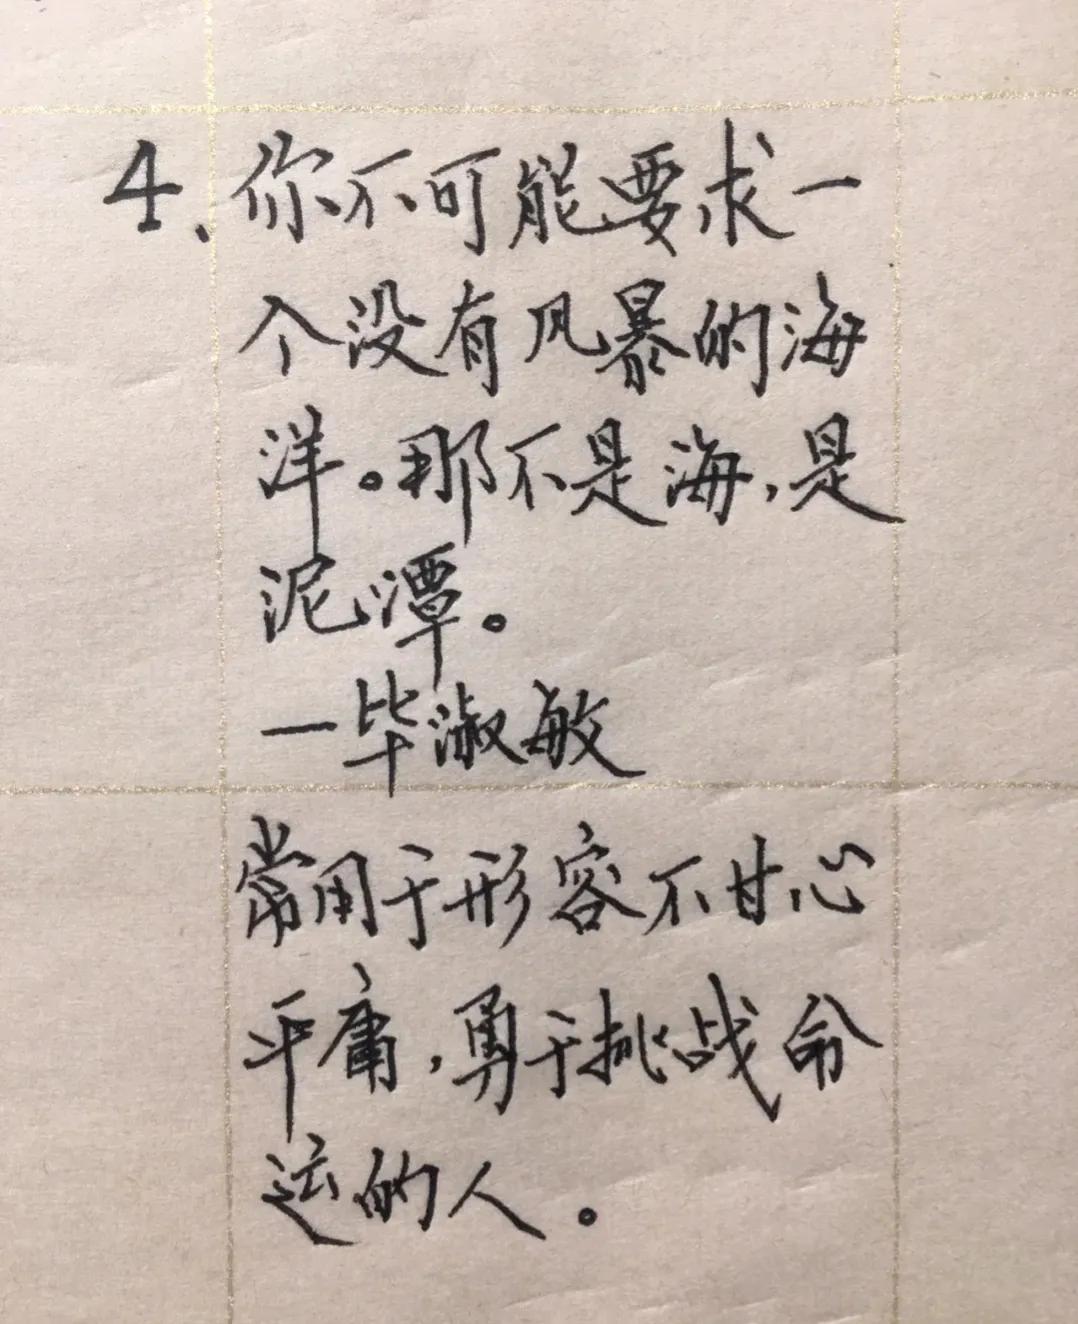 4、你不可能要求一
个没有风暴的海
洋。那不是海,是
泥潭。
一毕淑敏
常用于形容不甘心
平庸,勇于挑战命
运的人。